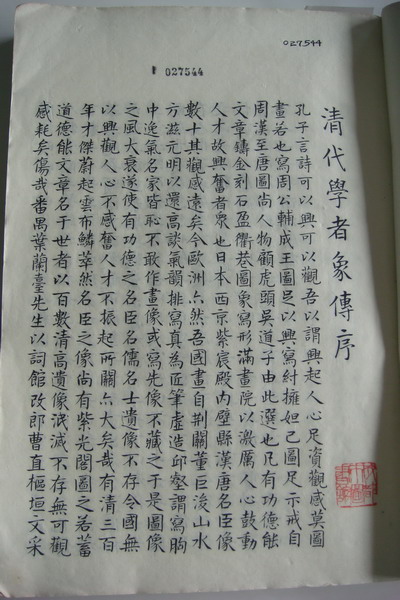 027544
027544
清代學者象傳序
孔子言詩可以興可以觀吾以謂興起人心足資觀感莫圖
畫若也寫周公輔成王圖足以興寫紂擁妲己圖足示戒自
周漢至唐圖尚人物顧虎頭吳道子由此選也凡有功德能
文章鑄金刻石盈衢圖象寫形滿畫院以激厲人心鼓動
人才故興奮者眾也日本西京紫宸殿內壁縣漢唐名臣像
數十其觀感遠矣今歐洲亦然吾國畫自荊關董巨後山水
方滋元明以還高談氣韻排寫真為匠筆虛造邱壑謂寫胸
中逸氣名家皆恥不敢作畫像或寫先像不藏之于是圖像
之風大衰遂使有功德之名臣名儒名士遺像不存令國無
以興觀人心不感奮人才不振起所關亦大矣哉有清三百
年才傑蔚起雲布鱗萃然名臣之像尚有紫光閣圖之若蓄
道德能文章名于世者以百數清高遺像泯滅不存無可觀
感耗矣傷哉番禺葉蘭臺先生以詞館改郎曹直樞垣文采